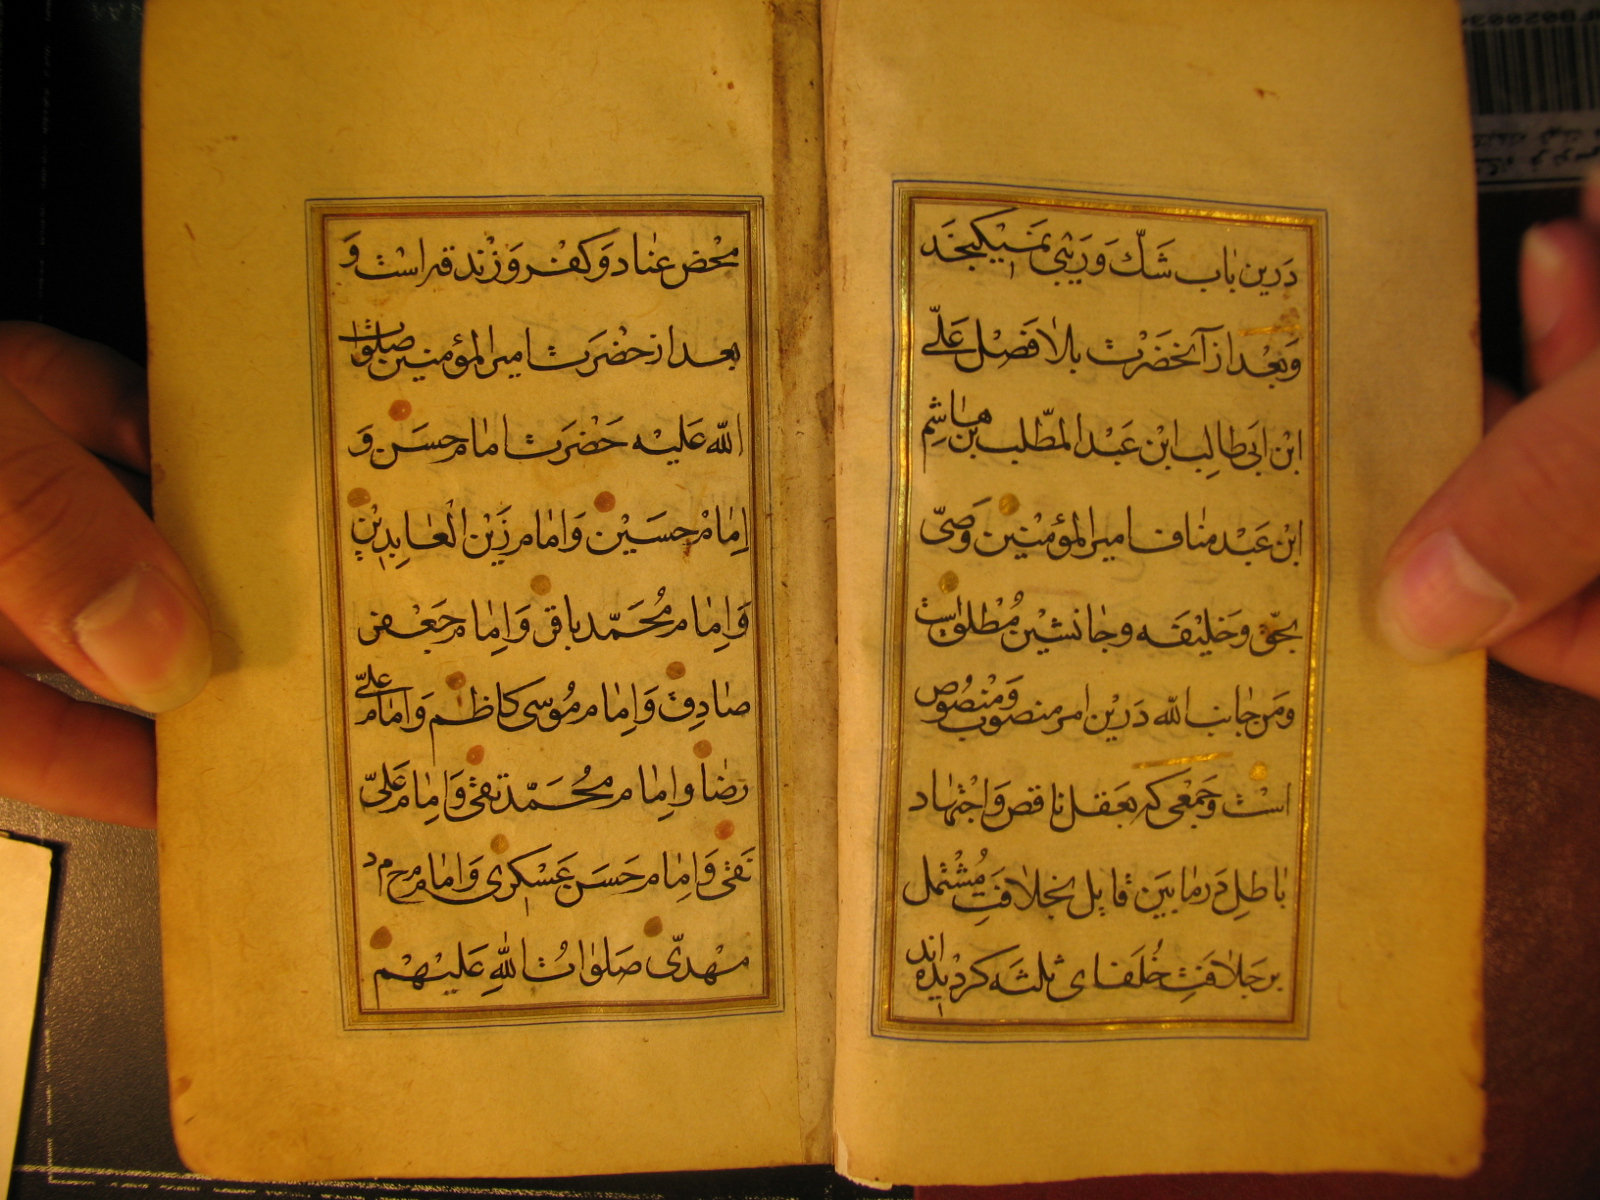 دَرین بٰاب شَکّ وَرَیْبی نمَیْکنجَد
وَبَعْد از آنحَضَرْت بلاٰفَصْل عَلّی
ابْن ابیٰ طالِب ابْن عَبْد المطّلب بْن هٰاشِم
ابْن عَبْد مناف امیر المؤمنْین وَصیّ
بحقّ وخَلیْفَه وجٰانشیْن مُطْلق است
ومَن جٰانب اللّه دَریْن امر منصوب وَمنْصُوص
اسْت وَجَمْعی که بعَقل ناقص وَاجْتهٰاد
بٰاطِل دَر مٰابین قٰایِل بخلاٰفَتِ مُشْتمل
بر جَلاٰفَتِ خُلَفای ثلٰثه کردیْده اند
محْض عنٰاد وَکفْر وَزنْدقه است وَ
بعد از حضْرَت امیر المؤمنین صلوٰات
اللّه عَلیْه حَضْرَت امٰام حسَن وَ
اِمٰامْ حسَیْن وَامٰام زَیْن الْعٰابِدیْن
وَاِمٰام مُحَمّد باقر وَاِمٰام جَعْفر
صٰادِق وَاِمٰام مُوسی کاظم وَامٰام عَلیّ
رضٰا واِمٰام محُمَّد تقی وَاِمٰام عَلیّ
نَقی وَاِمٰام حَسَن عَسْکری وَامٰام م ح م د
مهْدیّ صَلوٰاتُ اللّٰهِ عَلیْهْم